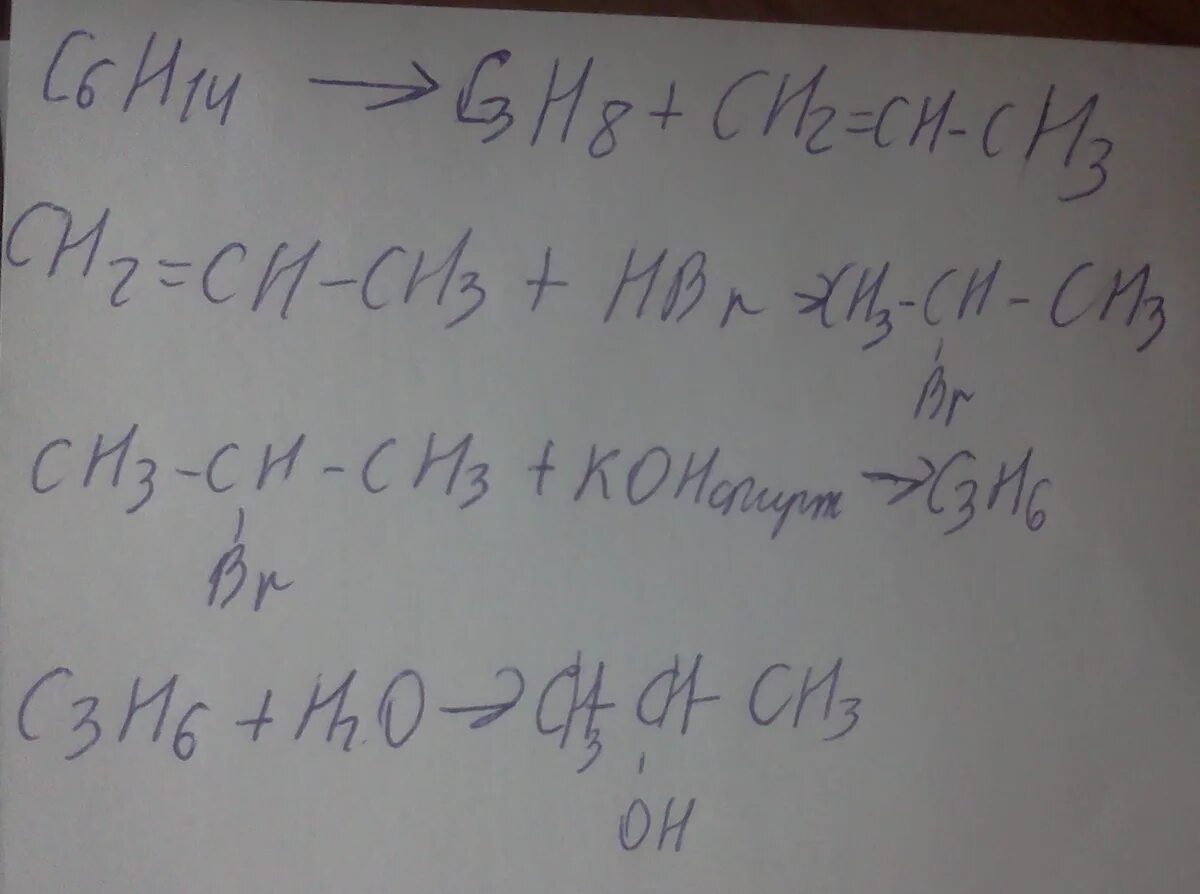 C6H14 → C3H8 + CH2=CH-CH3
CH2=CH-CH3 + HBr → CH3-CH-CH3
Br
CH3-CH-CH3 + KOHспирт → C3H6
Br
C3H6 + H2O → CH3-CH-CH3
OH